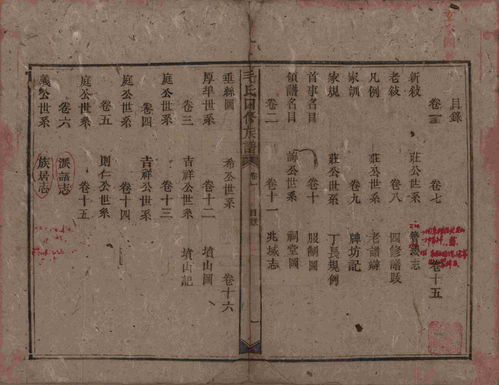 目錄
卷一 卷七
新敘 莊公世系 卷十五
老敘 卷八 四修譜跋
凡例 莊公世系 老譜辯
家訓 卷九 牌坊記
家規 莊公世系 丁長規例
首事名目 卷十 服制圖
領譜名目 海公世系 祠堂圖
卷二 卷十一 兆域志
毛氏四修族譜 卷一 目錄
垂絲圖 希公世系 卷十六
厚華世系 卷十二 墳山圖
卷三 吉祥公世系 墳山記
庭公世系 卷十三
卷四 吉祥公世系
庭公世系 卷十四
卷五 則仁公世系
庭公世系 卷十五
卷六 派語志
義公世系 族居志